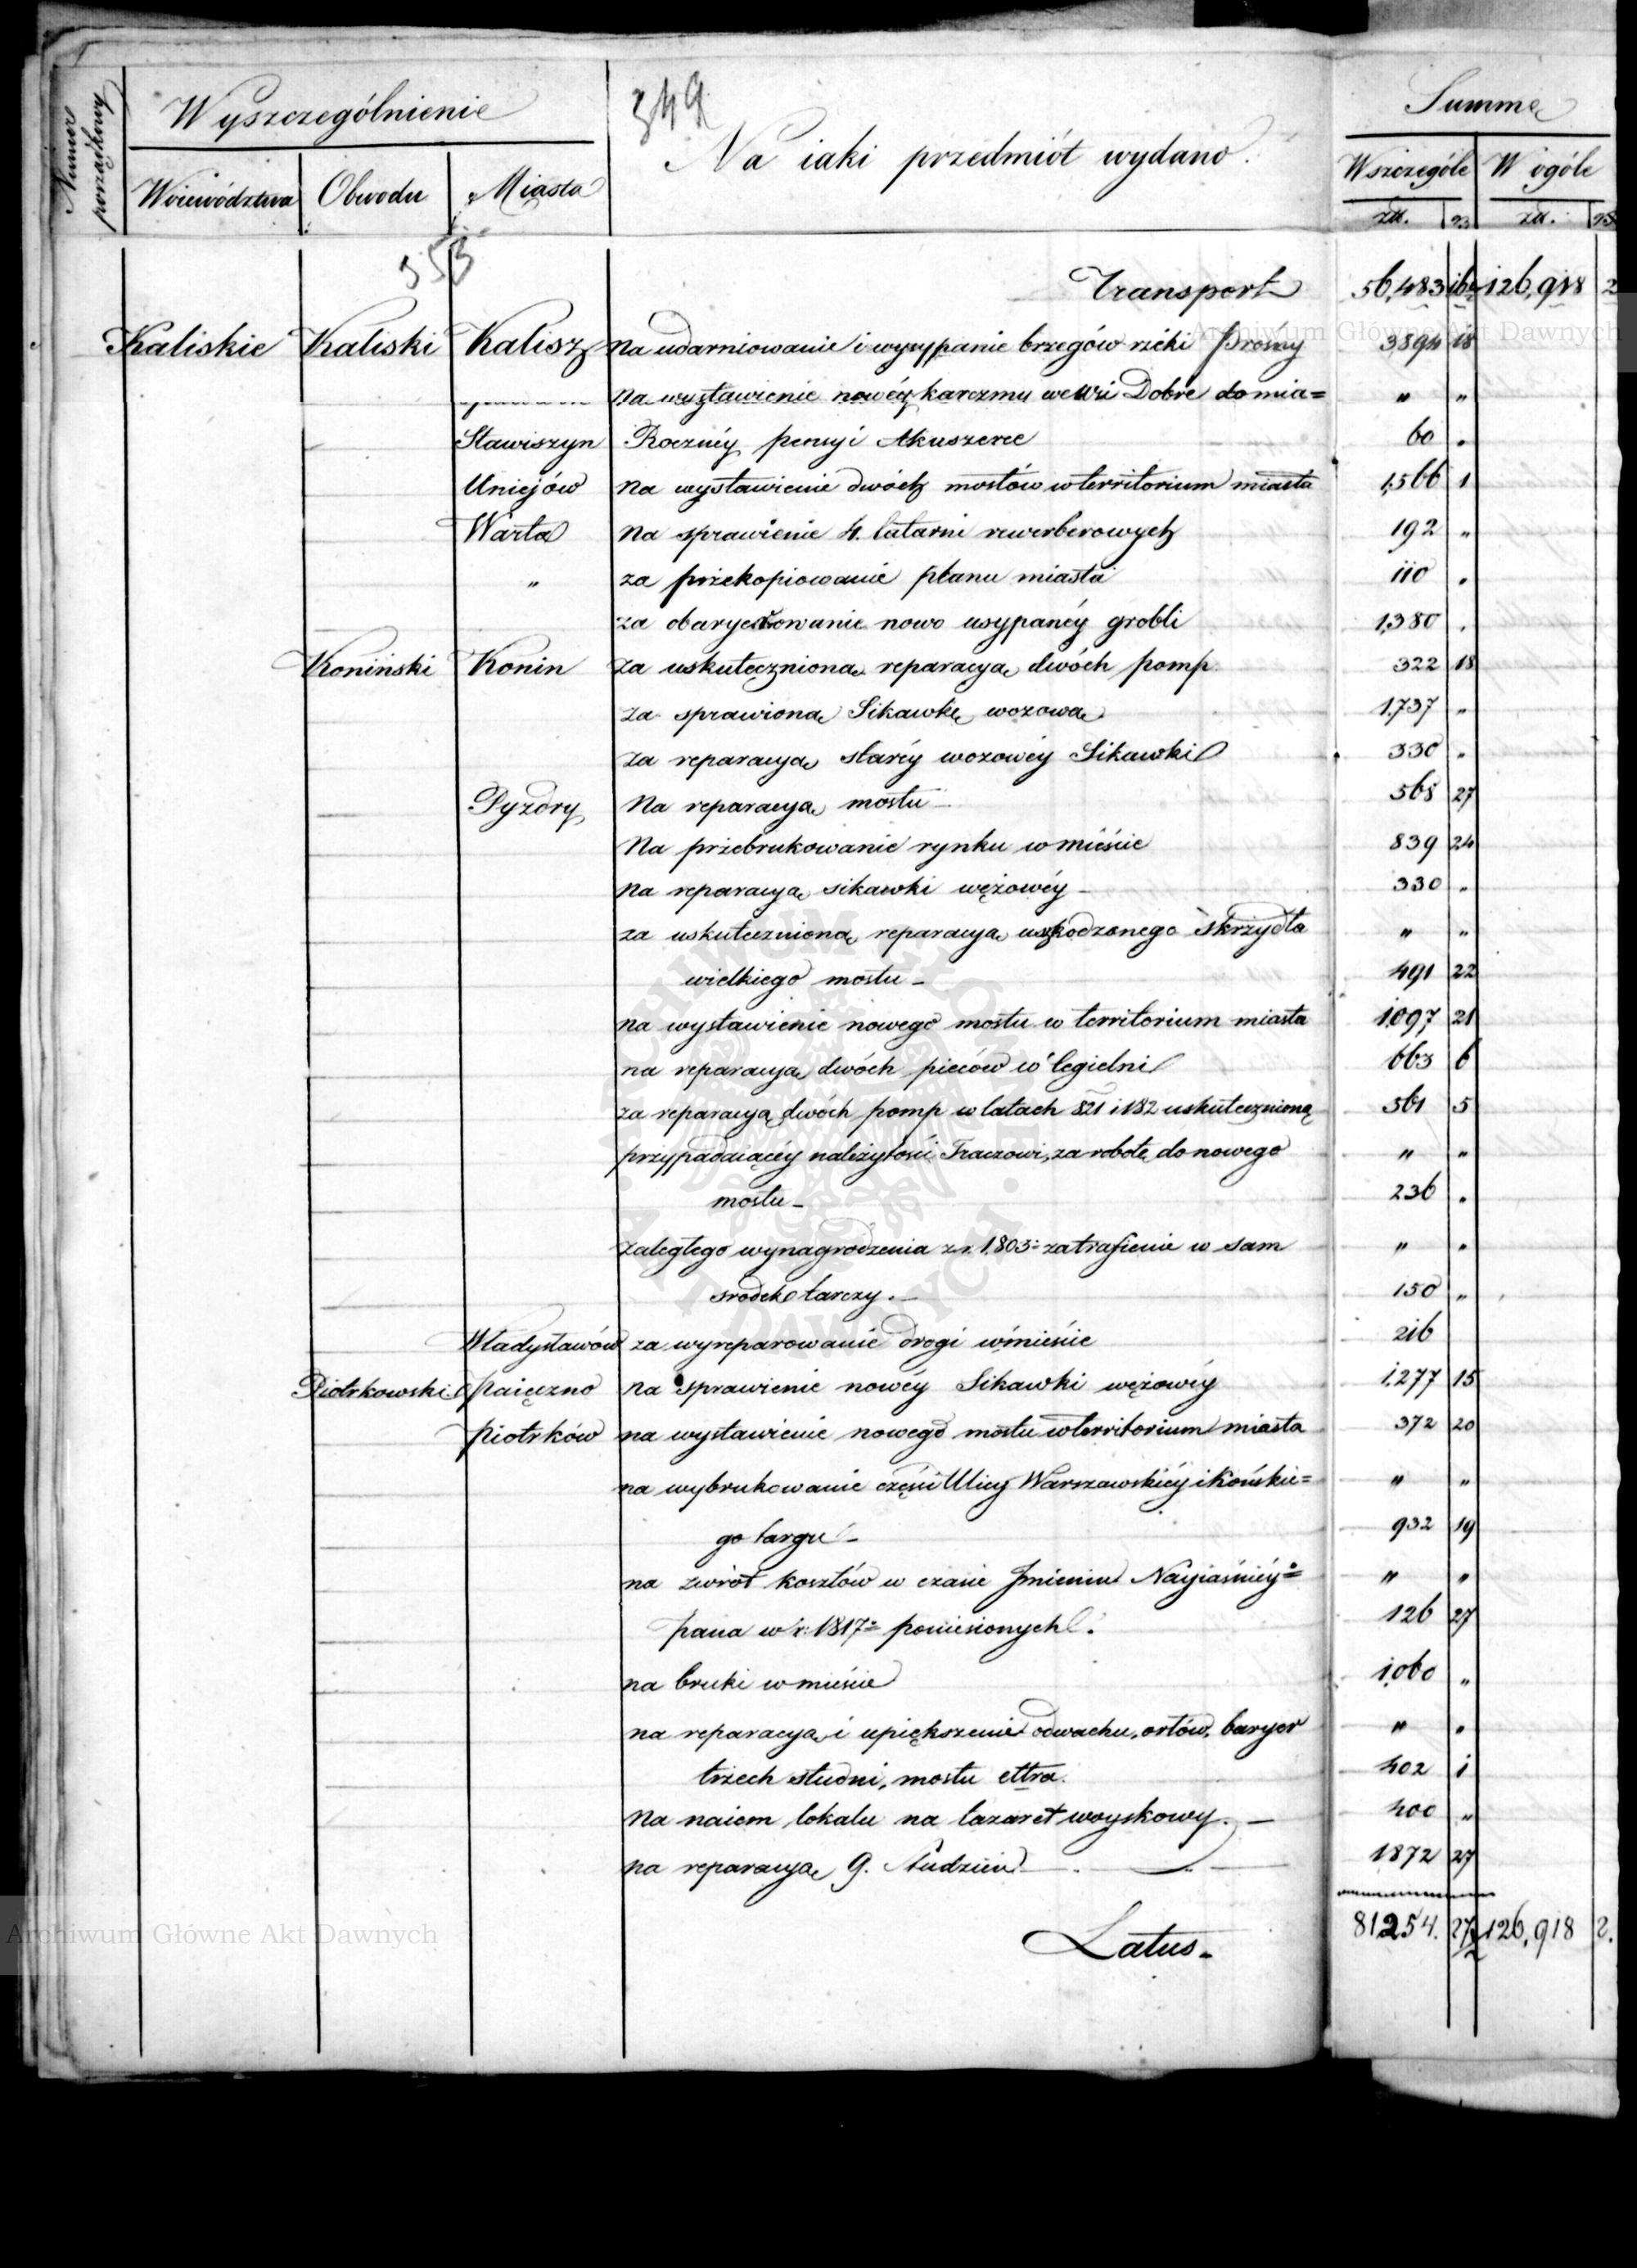 Numer porządkowy
Wyszczególnienie
Woiewództwa Obwodu Miasta
349
Na iaki przedmiót wydano.
Summa
Wszczególe W ogóle
zł. gr zł. gr
353
Transport 56,483 16½ 126,918 2
Kaliskie Kaliski Kalisz na udarniowanie i wysypanie brzegów rzéki Prósny 3894 18
na wystawienie nowéy karczmy we wsi Dobre do mia= " "
Stawiszyn Rocznéy pensyi Akuszerce 60 "
Uniejów Na wystawienie dwóch mostów w territorium miasta 1,566 1
Warta Na sprawienie 4. latarni rewerberowych 192 "
" za przekopiowanie planu miasta 110 "
za obaryerowanie nowo usypanéy grobli 1,380 "
Koniński Konin za uskutecznioną reparacyą dwóch pomp. 322 18
za sprawioną Sikawkę wozową 1,737 "
za reparacyą staréy wozowéy Sikawki 330 "
Pyzdry Na reparacyą mostu 568 27
Na przebrukowanie rynku w mieście 839 24
na reparacyą sikawki wężowéy 330 "
za uskutecznioną reparacyą uszkodzonego skrzydła " "
wielkiego mostu 491 22
na wystawienie nowego mostu w territorium miasta 1,097 21
na reparacyą dwóch pieców w Cegielni 663 6
za reparacyą dwóch pomp w latach 821 i 182 uskutecznioną 561 5
przypadaiącéy należytości Traczowi, za robotę do nowego " "
mostu 236 "
zaległego wynagrodzenia z r. 1803 za trafienie w sam " "
srodek tarczy. 150 "
Władysławów za wyreparowanie drogi w mieście 216
Piotrkowski Paięczno na sprawienie nowéy Sikawki wężowéy 1,277 15
Piotrków na wystawienie nowego mostu w territorium miasta 372 20
na wybrukowanie części Ulicy Warszawskiéy i Końskie= " "
go targu 932 19
na zwrót kosztów w czasie Jmienin Nayiaśniéy= " "
Pana w r. 1817 poniesionych. 126 27
na bruki w mieście 1,060 "
na reparacyą i upiększenie odwachu, orłów, baryer " "
trzech studni, mostu ettra. 402 1
Na naiem lokalu na lazaret woyskowy. 400 "
na reparacyą 9. studzien 1872 27
Latus. 81254. 27½ 126,918 2.
Archiwum Główne Akt Dawnych
Archiwum Główne Akt Dawnych
ARCHIWUM GŁÓWNE AKT DAWNYCH